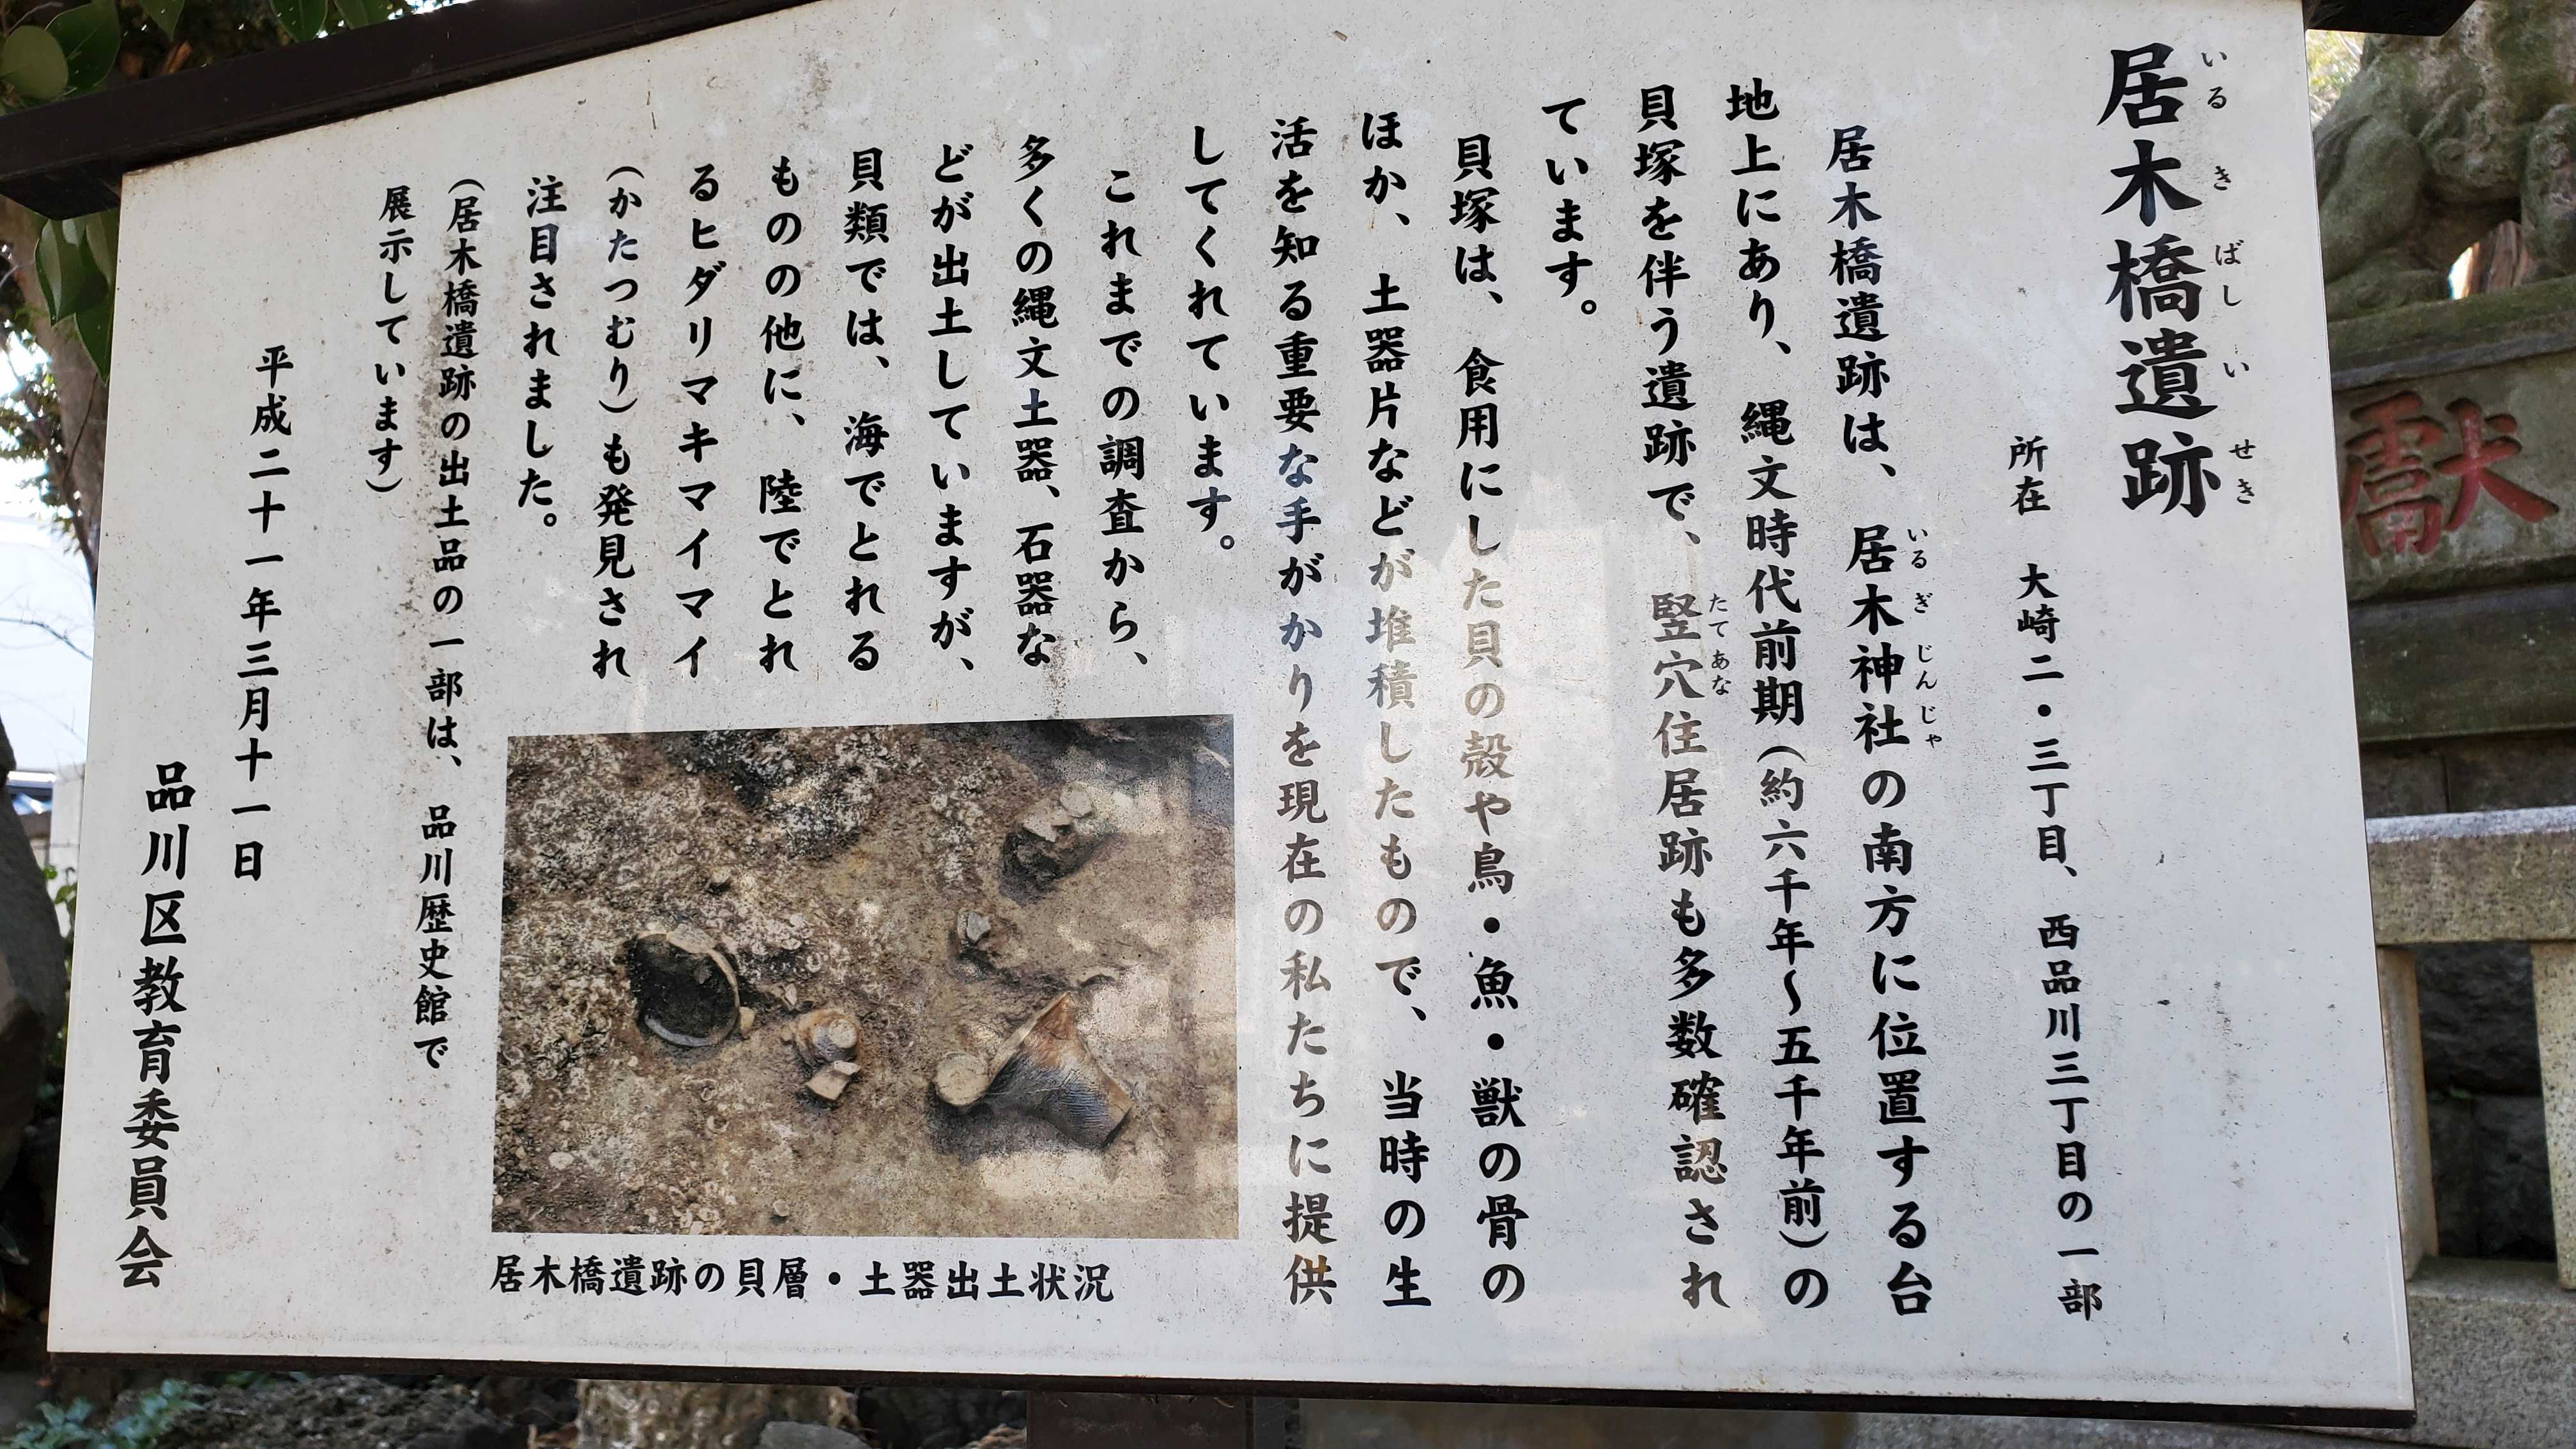 居木橋遺跡
いるきばしいせき
所在　大崎二・三丁目、西品川三丁目の一部
居木橋遺跡は、居木神社の南方に位置する台
いるぎじんじゃ
地上にあり、縄文時代前期（約六千年～五千年前）の
貝塚を伴う遺跡で、竪穴住居跡も多数確認され
たてあな
ています。
貝塚は、食用にした貝の殻や鳥・魚・獣の骨の
ほか、土器片などが堆積したもので、当時の生
活を知る重要な手がかりを現在の私たちに提供
してくれています。
これまでの調査から、
多くの縄文土器、石器な
どが出土していますが、
貝類では、海でとれる
ものの他に、陸でとれ
るヒダリマキマイマイ
（かたつむり）も発見され
注目されました。
（居木橋遺跡の出土品の一部は、品川歴史館で
展示しています）
平成二十一年三月十一日
品川区教育委員会
居木橋遺跡の貝層・土器出土状況
獻